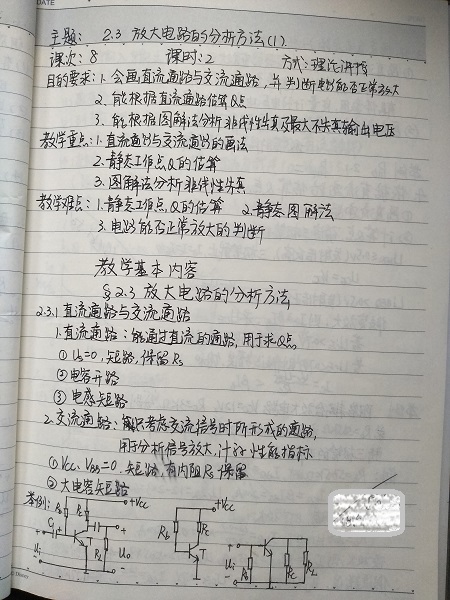 DATE
主题: 2.3 放大电路的分析方法(1)
课次: 8 课时: 2 方式: 理论讲授
目的要求: 1. 会画直流通路与交流通路, 并判断电路能否正常放大
2. 能根据直流通路估算Q点
3. 能根据图解法分析非线性失真及最大不失真输出电压
教学重点: 1. 直流通路与交流通路的画法
2. 静态工作点Q的估算
3. 图解法分析非线性失真
教学难点: 1. 静态工作点Q的估算 2. 静态图解法
3. 电路能否正常放大的判断
教学基本内容
§2.3 放大电路的分析方法
2.3.1 直流通路与交流通路
1. 直流通路: 能通过直流的通路, 用于求Q点
① Us=0, 短路, 保留Rs
② 电容开路
③ 电感短路
2. 交流通路: 考虑交流信号时所形成的通路,
用于分析信号放大, 计算性能指标
① Vcc、VBB=0, 短路, 有内阻Rs保留
② 大电容短路
举例: Rb Rc +Vcc
C1 T RL Ui Uo
+Vcc Rb Rc T
Ui Rb T Rc RL